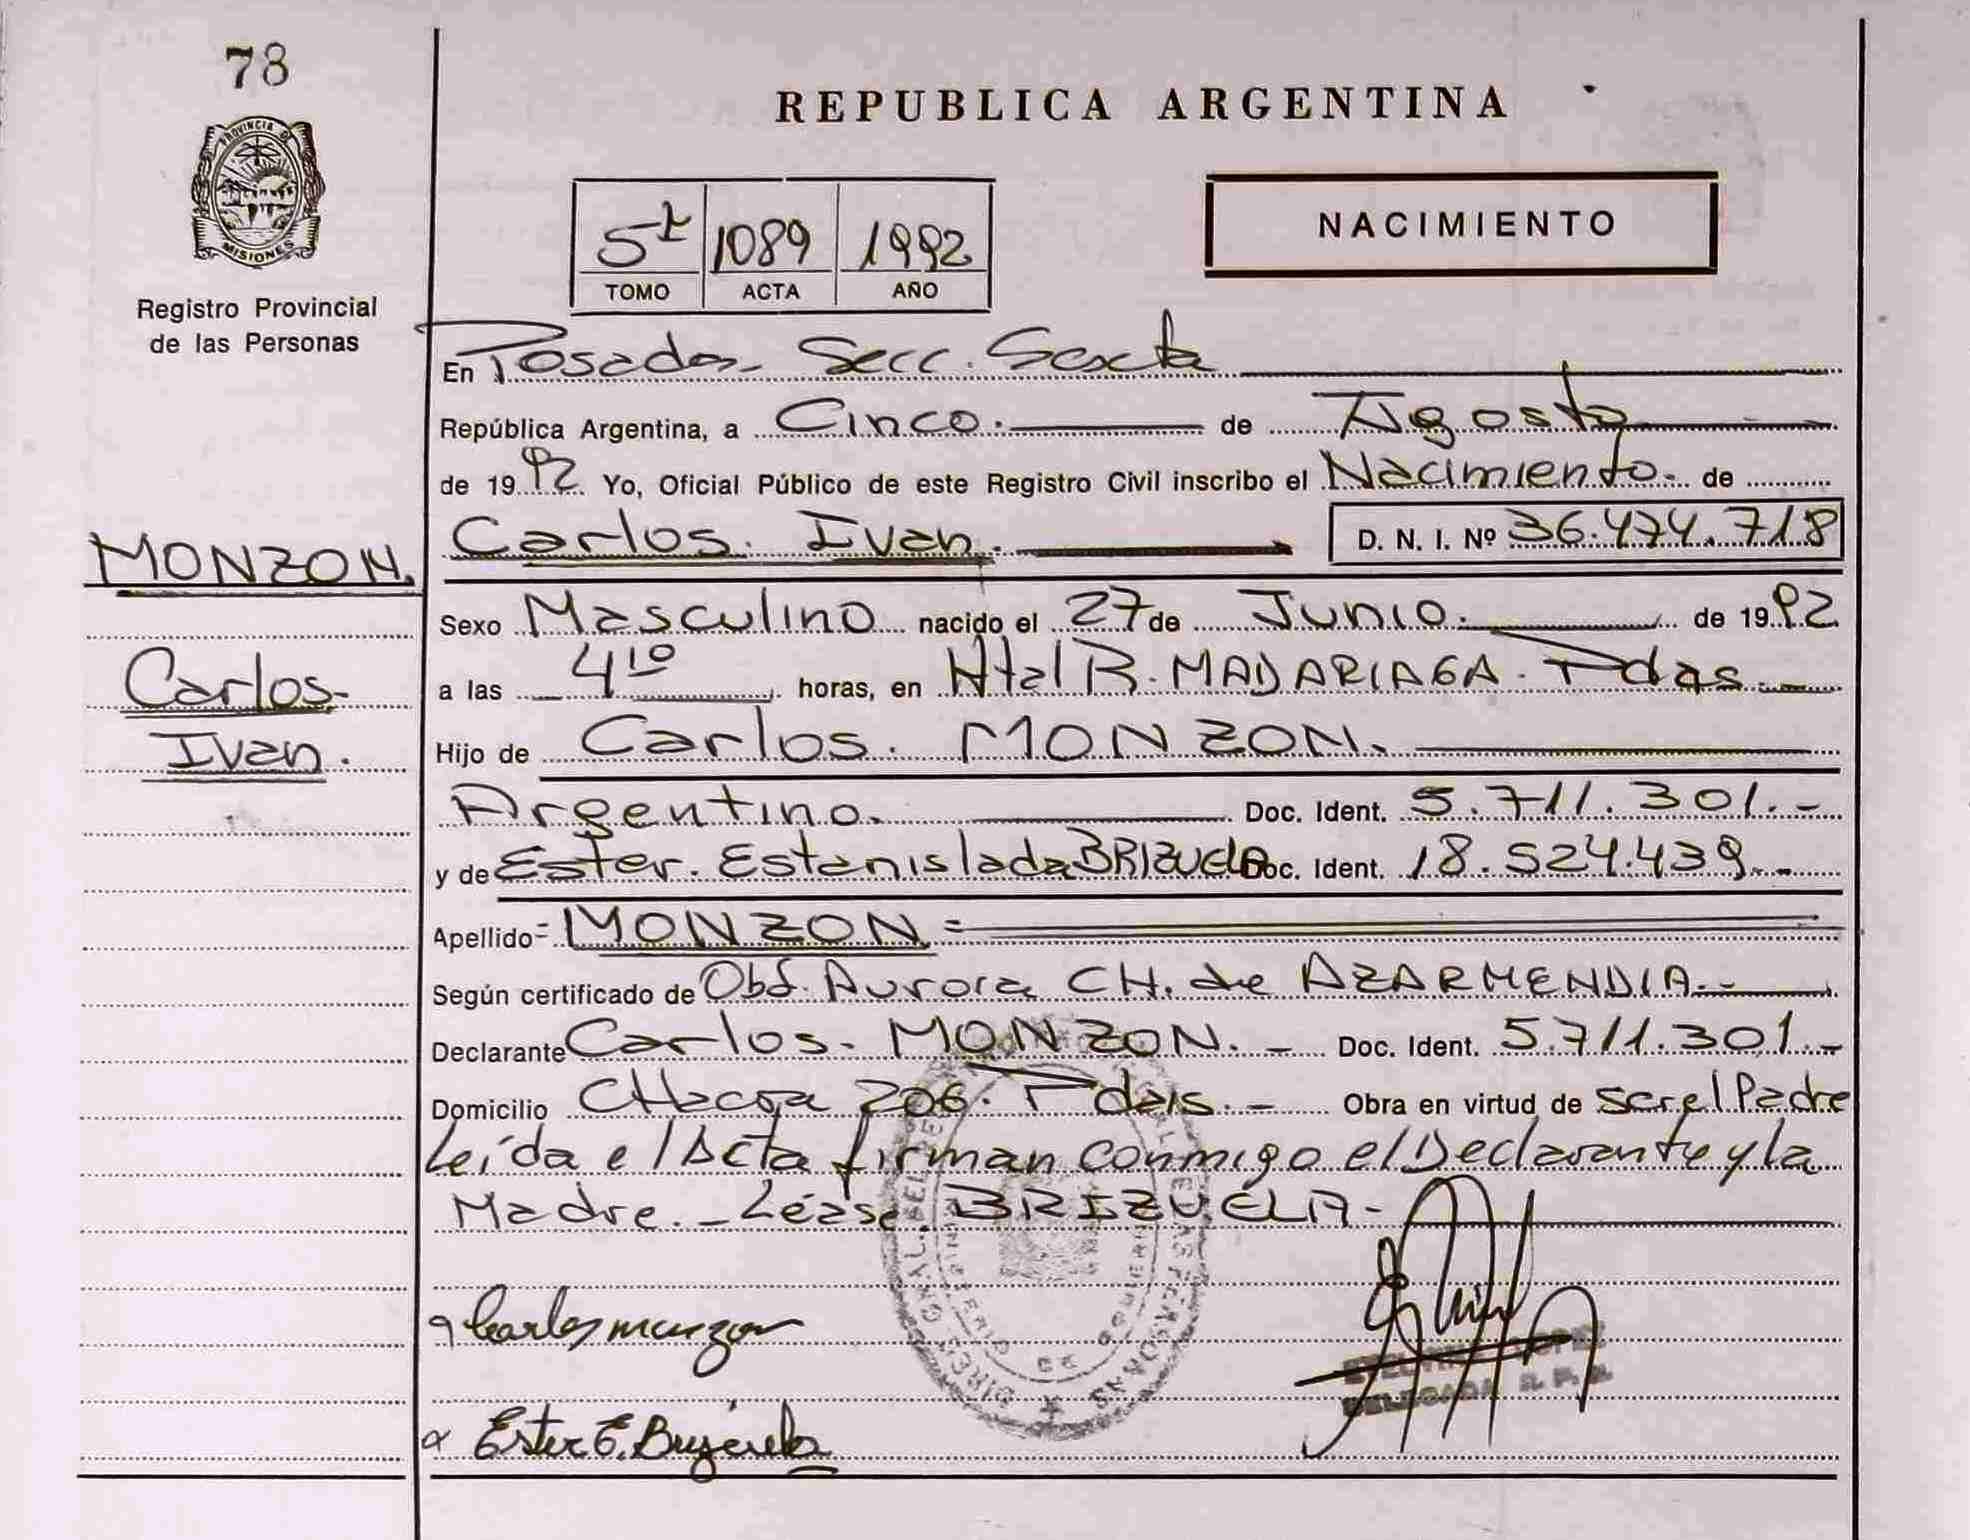 78
PROVINCIA DE
MISIONES
Registro Provincial
de las Personas
MONZON.
Carlos-
Ivan.
REPUBLICA ARGENTINA
5t 1089 1992
TOMO ACTA AÑO
NACIMIENTO
En Posadas- Secc. Sexta
República Argentina, a Cinco. de Agosto
de 1992 Yo, Oficial Público de este Registro Civil inscribo el Nacimiento. de
Carlos. Ivan. D. N. I. Nº 36.474.718
Sexo Masculino nacido el 27 de Junio. de 1992
a las 4 10 horas, en Htal R. MADARIAGA. Pdas.-
Hijo de Carlos. MONZON.
Argentino. Doc. Ident. 5.711.301.-
y de Ester. Estanislada BRIZUELA Doc. Ident. 18.524.439.-
Apellido= MONZON=
Según certificado de Obst. Aurora CH. de AZARMENDIA.-
Declarante Carlos- MONZON.- Doc. Ident. 5.711.301.-
Domicilio CHacra 206. Pdas.- Obra en virtud de ser el Padre
Leída el Acta firman conmigo el Declarante y la
Madre.- Léase BRIZUELA-
Carlos monzon
Ester E. Brizuela
LOPEZ
DELEGADA R. P. P.